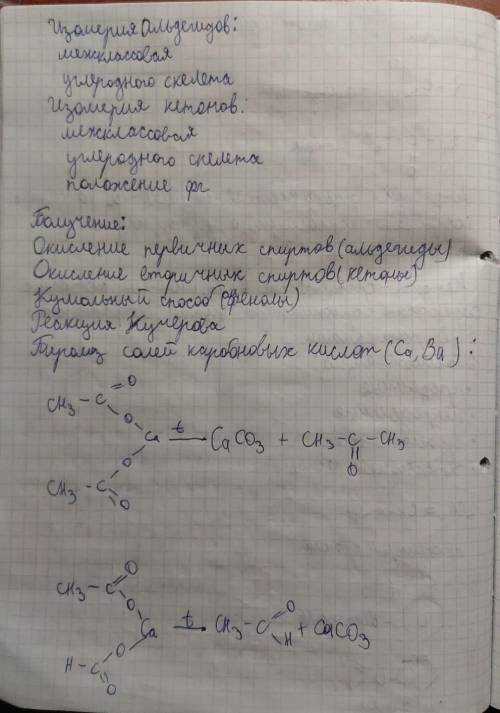 Изомерия альдегидов:
межклассовая
углеродного скелета
Изомерия кетонов:
межклассовая
углеродного скелета
положение фг
Получение:
Окисление первичных спиртов (альдегиды)
Окисление вторичных спиртов (кетоны)
Кумольный способ (фенолы)
Реакция Кучерова
Пиролиз солей карбновых кислот (Ca, Ba):
O
CH3 - C
O
Ca t CaCO3 + CH3 - C - CH3
O O
CH3 - C
O
O
CH3 - C
O
Ca t CH3 - C O H + CaCO3
O
H - C
O